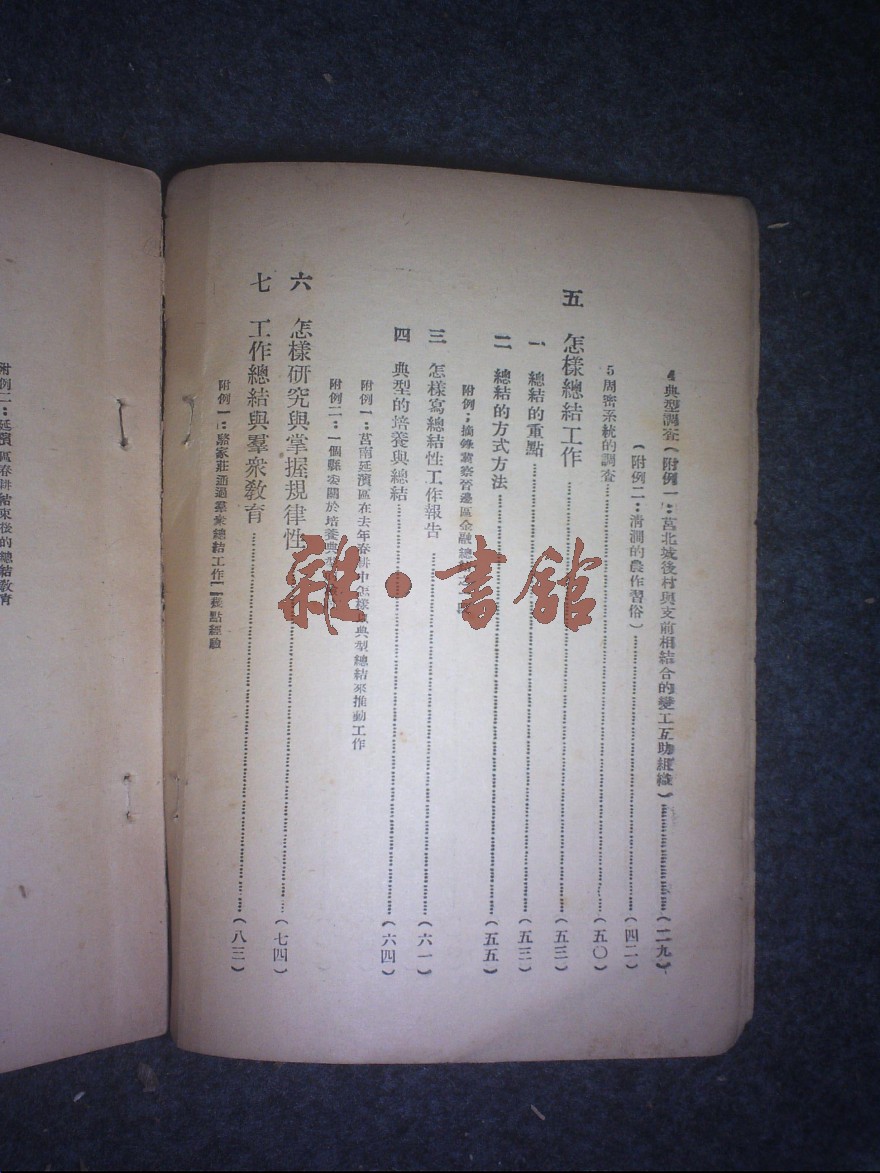 4 典型調查(附例一:莒北城後村與支前相結合的變工互助組織)……(二九)
(附例二:淸澗的農作習俗)……(四二)
5 周密系統的調查……(五〇)
五 怎樣總結工作……(五三)
一 總結的重點……(五三)
二 總結的方式方法……(五五)
附例:摘錄冀察晉邊區金融總
三 怎樣寫總結性工作報告……(六一)
四 典型的培養與總結……(六四)
附例一:莒南延濱區在去年春耕中怎樣 典型總結來推動工作
附例二:一個縣委關於培養典型
六 怎樣硏究與掌握規律性……(七四)
七 工作總結與羣衆敎育……(八三)
附例一: 家莊通過羣衆總結工作 點經驗
附例二:延濱區春耕結束後的總結敎育
雜·書館